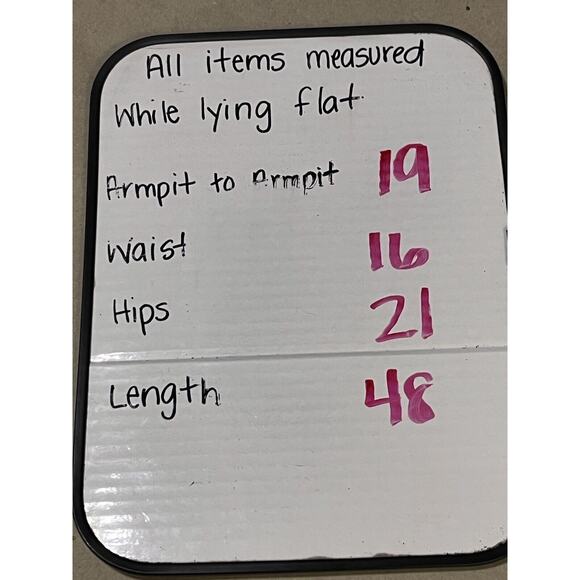 All items measured
While lying flat.
Armpit to Armpit 19
Waist 16
Hips 21
Length 48